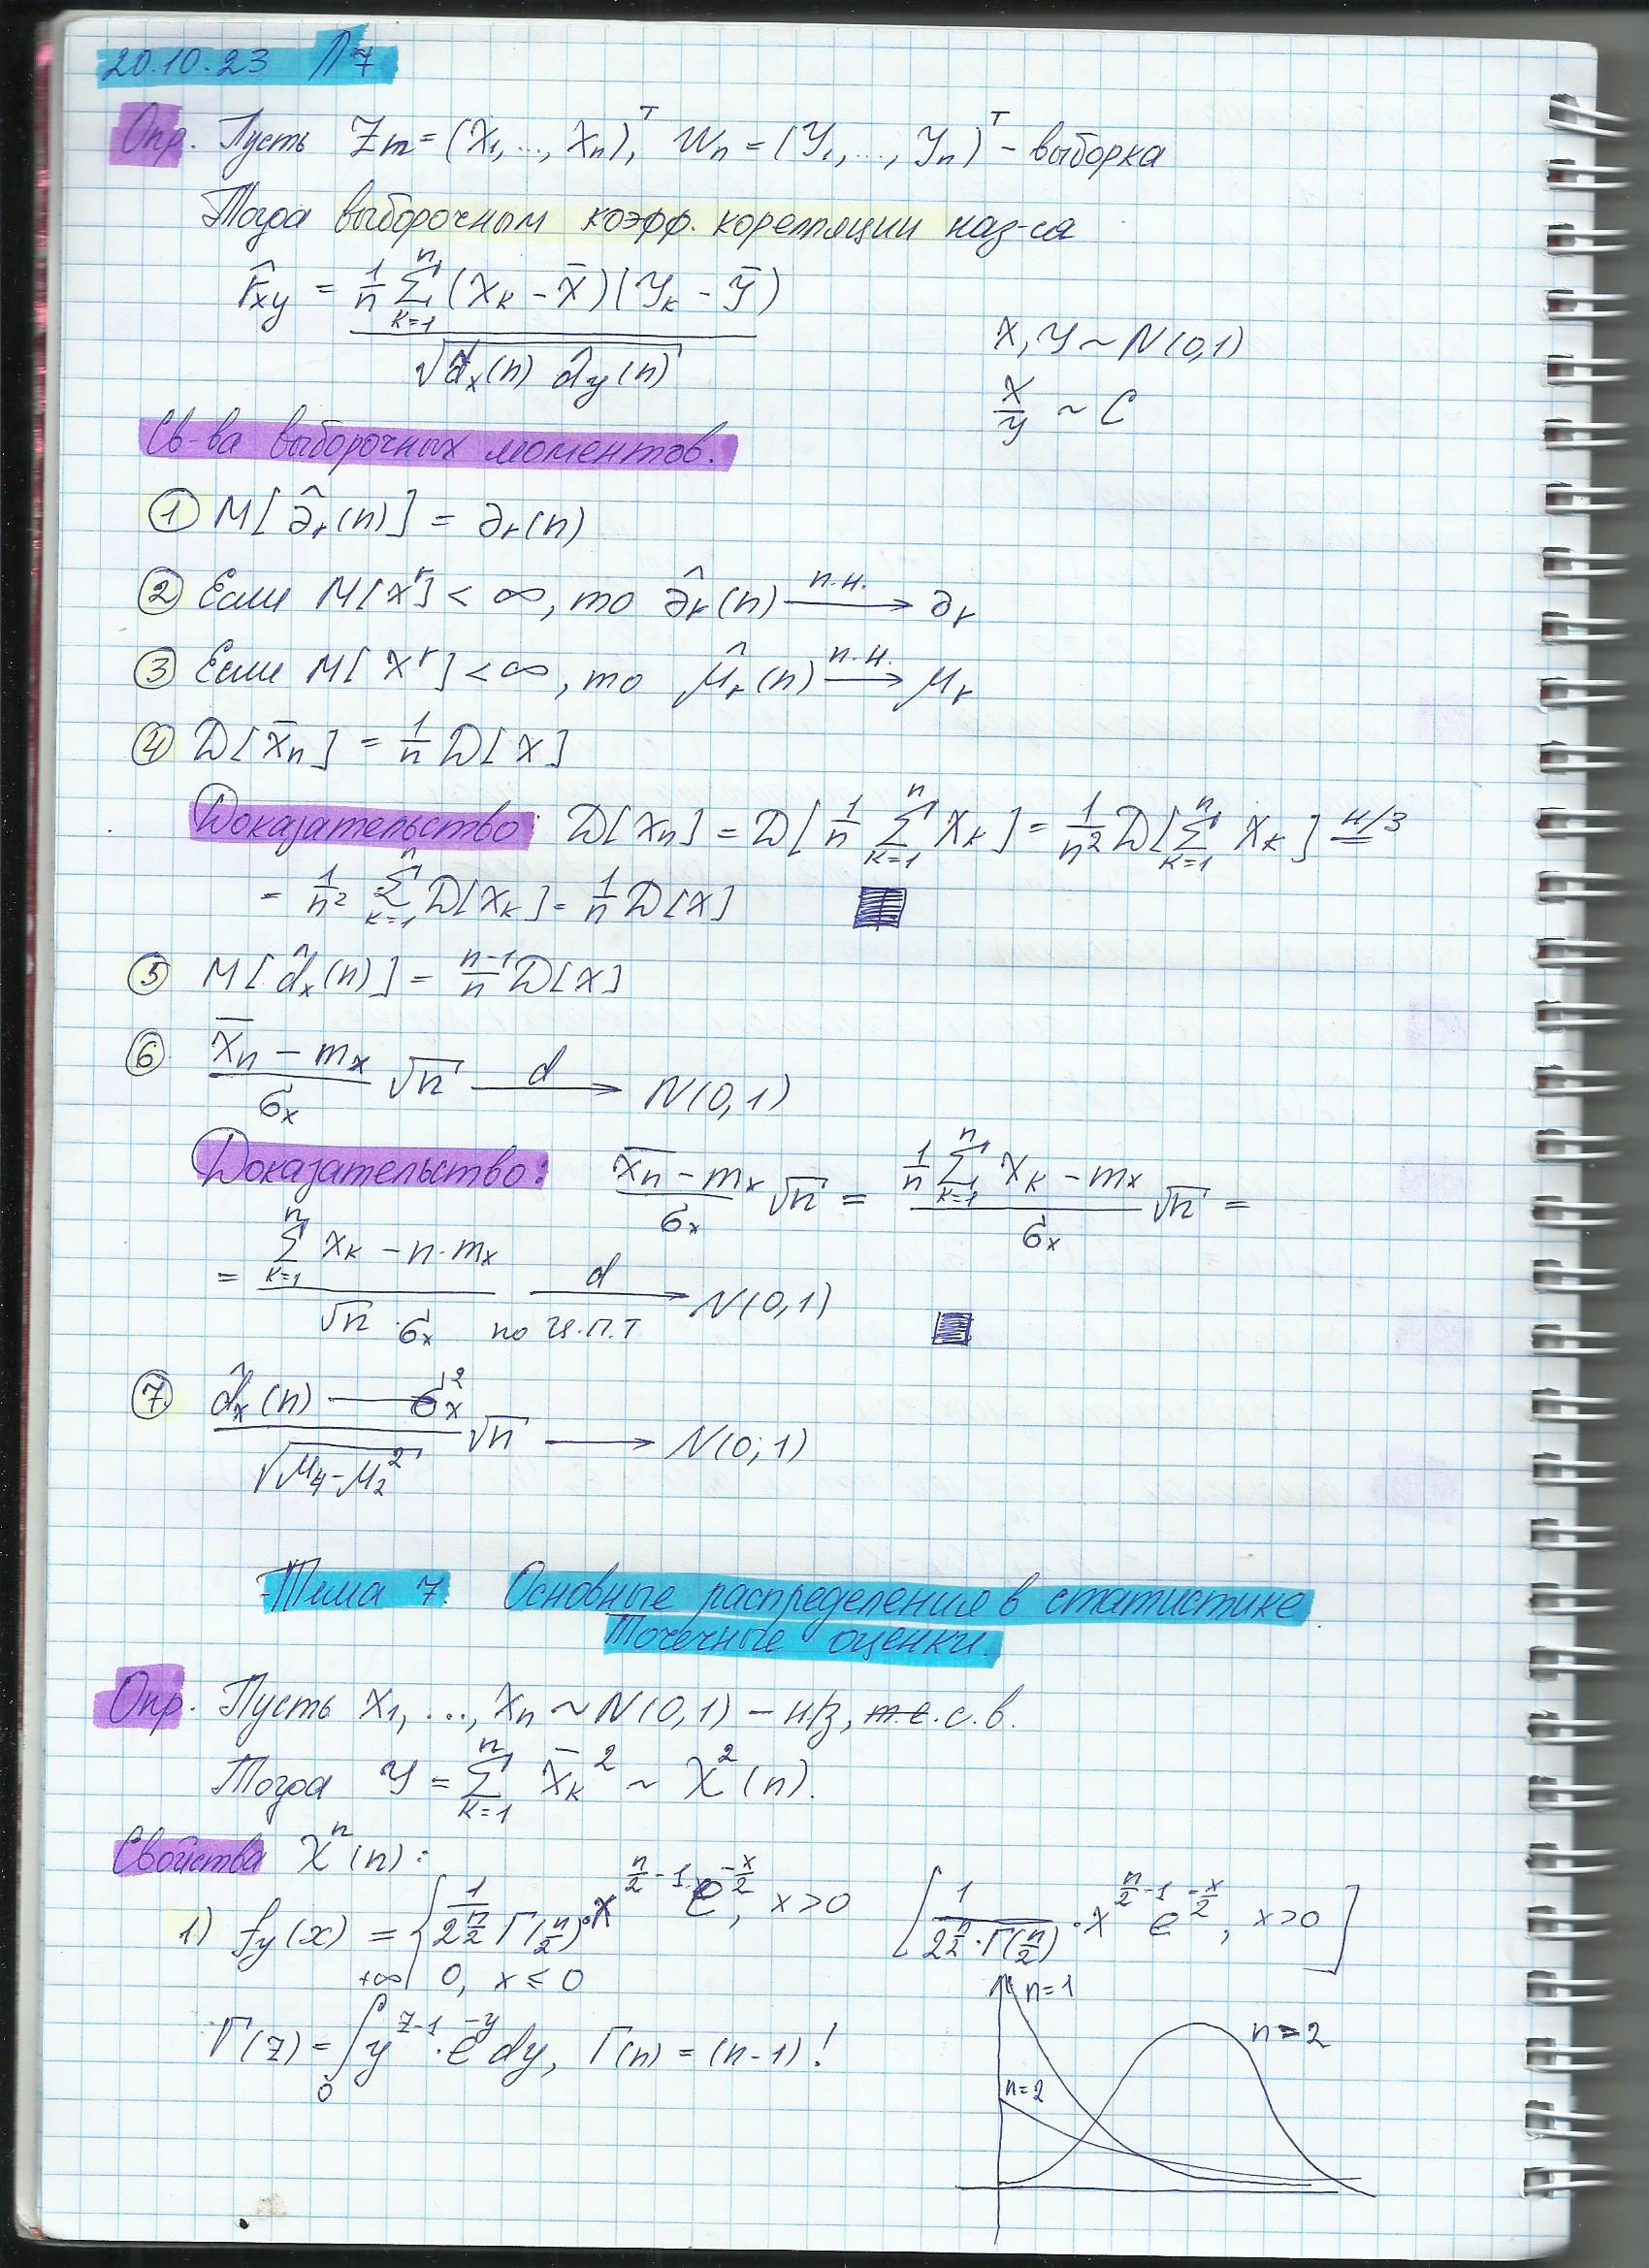 20.10.23 Л7
Опр. Пусть Zm = (X₁, ..., Xn)ᵀ, Wn = (Y₁, ..., Yn)ᵀ - выборка
Тогда выборочным коэфф. корелляции наз-ся
r̂xy = 1/n ∑ₖ₌₁ⁿ (Xk - X̄)(Yk - Ȳ) / √(d̂x(n) d̂y(n))
X, Y ~ N(0,1)
X/Y ~ C
Св-ва выборочных моментов.
① M[∂̂r(n)] = ∂r(n)
② Если M[Xʳ] < ∞, то ∂̂r(n) —п.н.→ ∂r
③ Если M[Xʳ] < ∞, то μ̂r(n) —п.н.→ μr
④ D[X̄n] = 1/n D[X]
Доказательство: D[Xn] = D[1/n ∑ₖ₌₁ⁿ Xk] = 1/n² D[∑ₖ₌₁ⁿ Xk] =н/з
= 1/n² ∑ₖ₌₁ⁿ D[Xk] = 1/n D[X]
⑤ M[d̂x(n)] = (n-1)/n D[X]
⑥ (X̄n - mx)/σx √n —d→ N(0,1)
Доказательство: (X̄n - mx)/σx √n = (1/n ∑ₖ₌₁ⁿ Xk - mx)/σx √n =
= (∑ₖ₌₁ⁿ Xk - n·mx)/(√n · σx) —d→ N(0,1)
по ц.п.т
⑦ (d̂x(n) — σx²)/√(μ₄ - μ₂²) √n → N(0;1)
Тема 7. Основные распределения в статистике
Точечные оценки.
Опр. Пусть X₁, ..., Xn ~ N(0,1) – н/з, т.е. с.в.
Тогда Y = ∑ₖ₌₁ⁿ X̄k² ~ χ²(n).
Свойства χⁿ(n):
1) fy(x) = { 1/(2^(n/2) Γ(n/2)) · x^(n/2-1) · e^(-x/2), x > 0 [1/(2^(n/2) · Γ(n/2)) · x^(n/2-1) e^(-x/2), x > 0]
0, x ≤ 0
Γ(z) = ∫₀^(+∞) y^(z-1) · e^(-y) dy, Γ(n) = (n-1)!
n=1
n>2
n=2